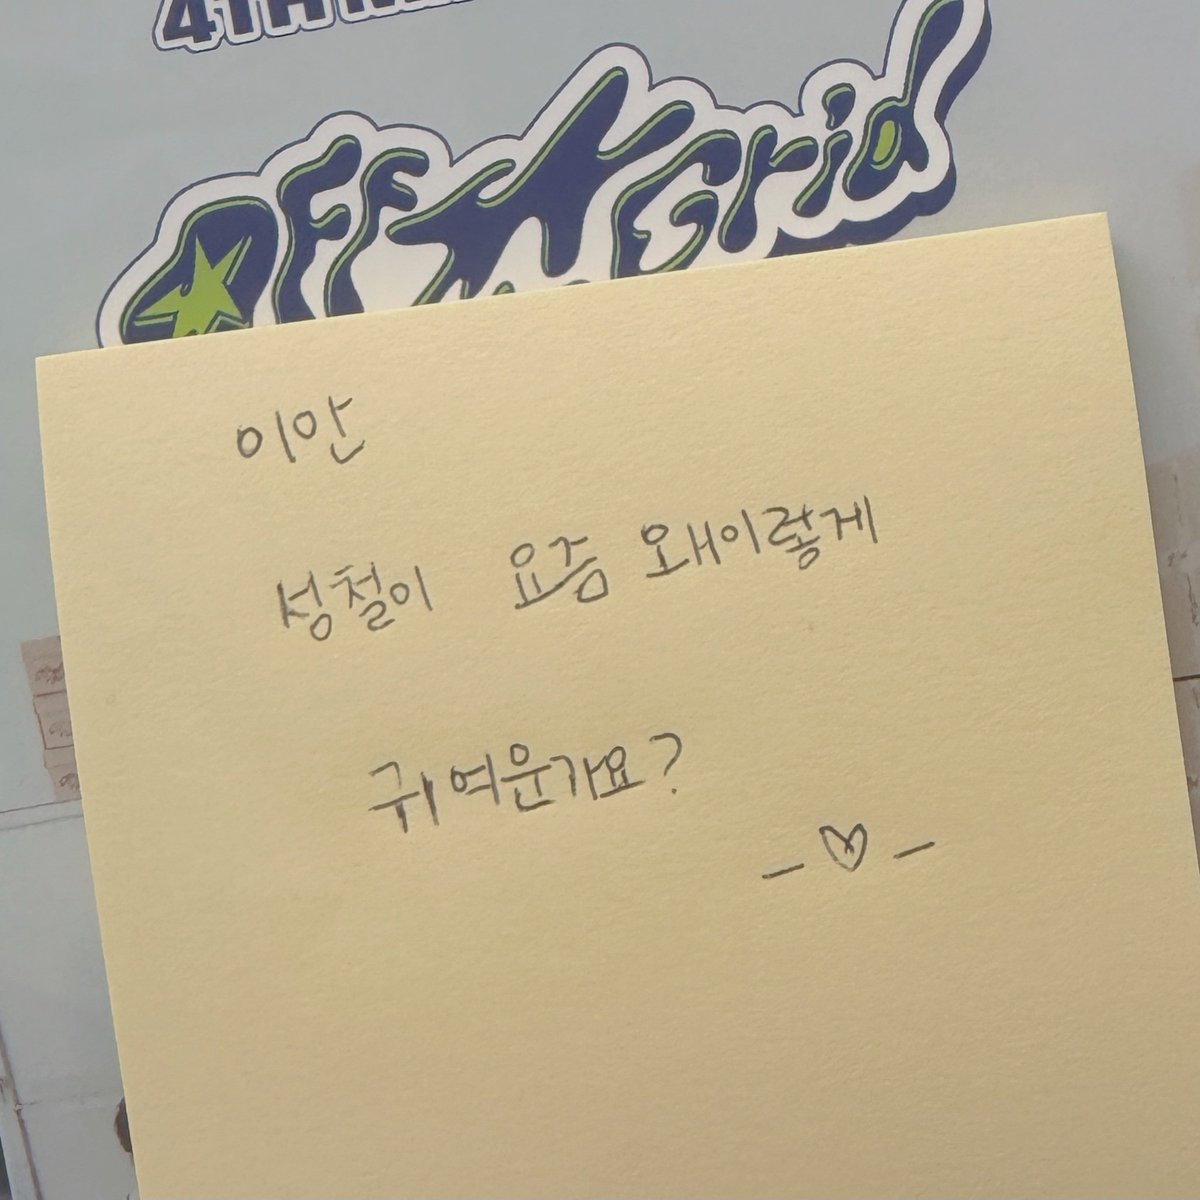 4TH
OFF the Grid
이안
성철이 요즘 왜이렇게
귀여운가요?